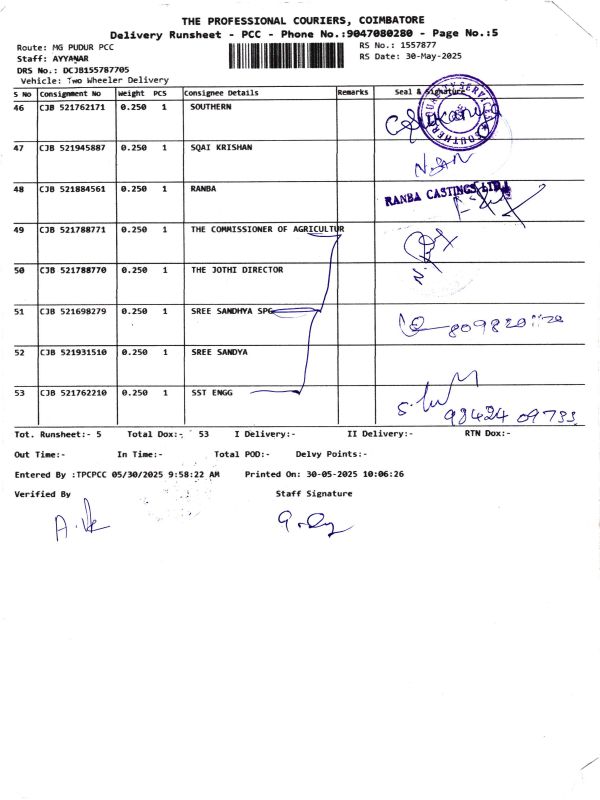 THE PROFESSIONAL COURIERS, COIMBATORE
Delivery Runsheet - PCC - Phone No.:9047080280 - Page No.:5
Route: MG PUDUR PCC RS No.: 1557877
Staff: AYYANAR RS Date: 30-May-2025
DRS No.: DCJB155787705
Vehicle: Two Wheeler Delivery
S No Consignment No Weight PCS Consignee Details Remarks Seal & Signature
46 CJB 521762171 0.250 1 SOUTHERN
47 CJB 521945887 0.250 1 SQAI KRISHAN
48 CJB 521884561 0.250 1 RANBA RANBA CASTINGS LTD.,
49 CJB 521788771 0.250 1 THE COMMISSIONER OF AGRICULTUR
50 CJB 521788770 0.250 1 THE JOTHI DIRECTOR
51 CJB 521698279 0.250 1 SREE SANDHYA SPG
52 CJB 521931510 0.250 1 SREE SANDYA
53 CJB 521762210 0.250 1 SST ENGG
98424 09733
Tot. Runsheet:- 5 Total Dox:- 53 I Delivery:- II Delivery:- RTN Dox:-
Out Time:- In Time:- Total POD:- Delvy Points:-
Entered By :TPCPCC 05/30/2025 9:58:22 AM Printed On: 30-05-2025 10:06:26
Verified By Staff Signature